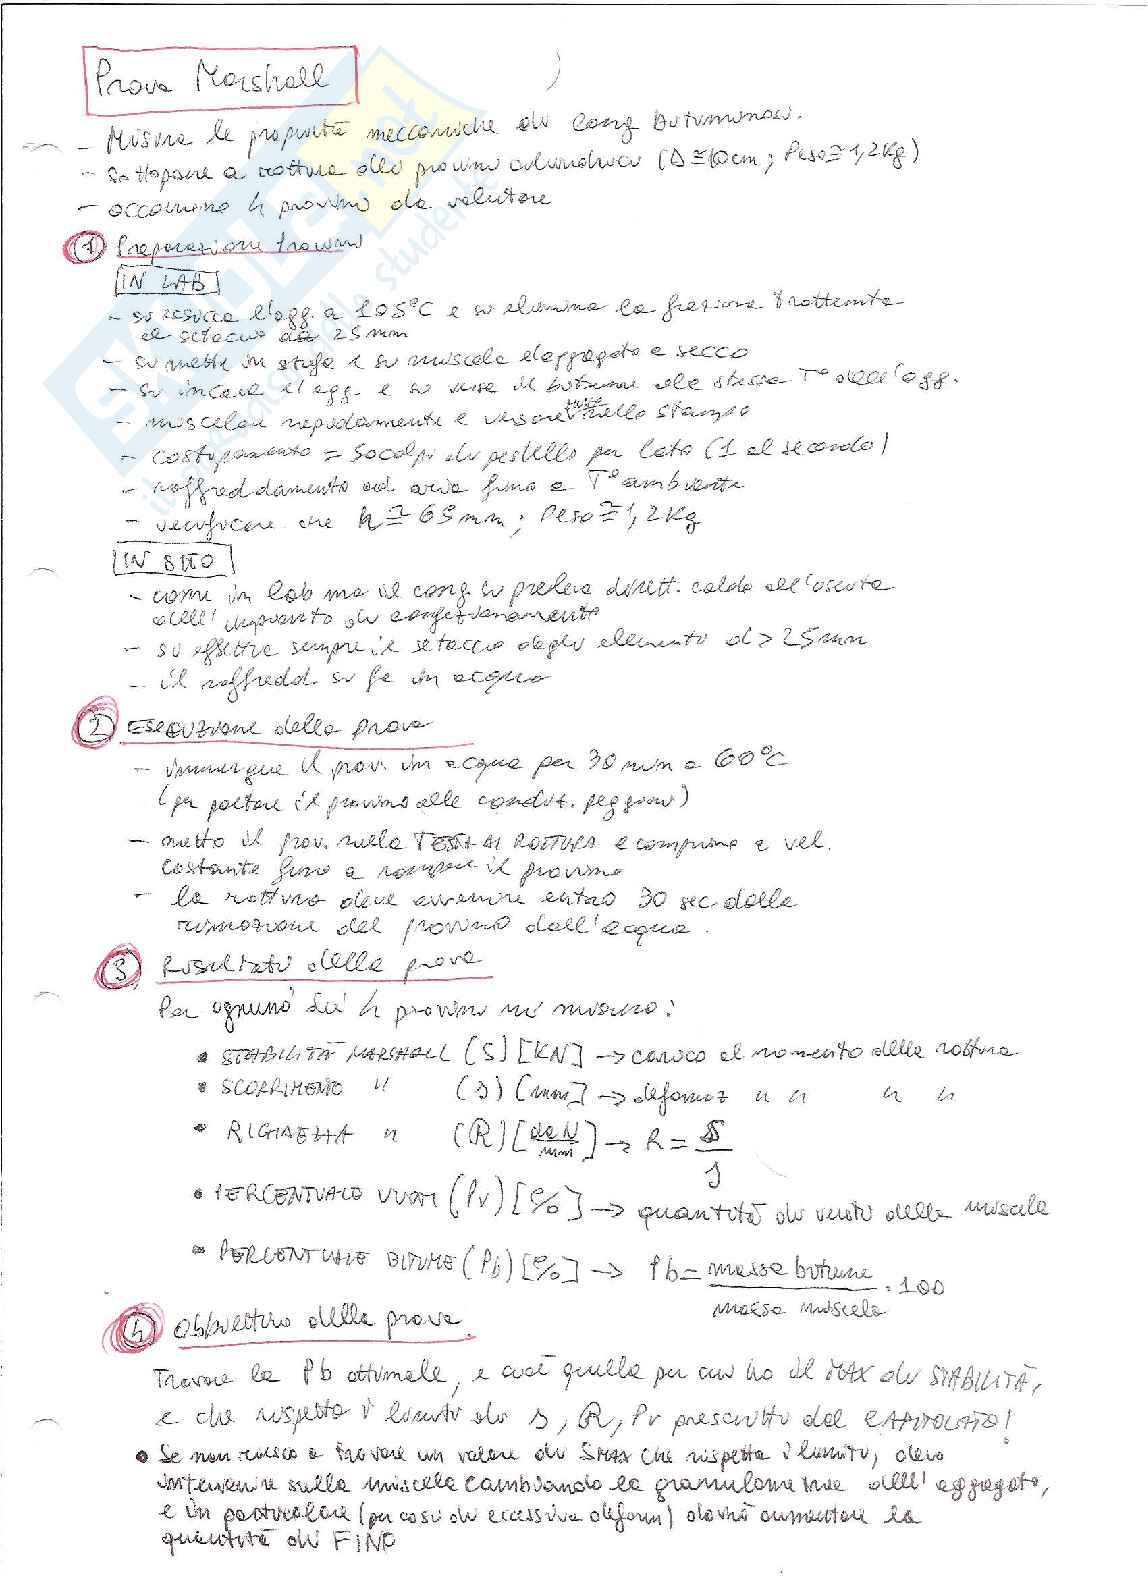 Prova Marshall
- Misura le proprietà meccaniche di cong bituminosi.
- sottopone a rottura dei provini cilindrici (D ≅ 10cm; Peso ≅ 1,2Kg)
- occorrono 4 provini da valutare
1 Preparazione provini
IN LAB
- si essicca l'agg. a 105°C e si elimina la frazione trattenuta
al setaccio da 25mm
- si mette in stufa e si miscela l'aggregato a secco
- si incas l'agg. e si versa il bitume alla stessa T° dell'agg.
- miscelare rapidamente e versare nello stampo
- costipamento = 50 colpi di pestello per lato (1 al secondo)
- raffreddamento ad aria fino a T° ambiente
- verificare che h ≅ 65mm; Peso ≅ 1,2Kg
IN SITO
- come in lab ma il cong. si preleva dirett. caldo all'uscita
dell'impianto di confezionamento
- si effettua sempre il setaccio degli elementi d > 25mm
- il raffredd. si fa in acqua
2 Esecuzione della prova
- immerge il prov. in acqua per 30 min a 60°C
(per portare il provino alle condiz. peggiori)
- metto il prov. nella TESTA DI ROTTURA e comprimo a vel.
costante fino a rompere il provino
- la rottura deve avvenire entro 30 sec. dalla
rimozione del provino dall'acqua.
3 Risultati della prova
Per ognuno dei 4 provini mi misuro:
• STABILITÀ MARSHALL (S) [KN] → carico al momento della rottura
• SCORRIMENTO " (s) [mm] → deformaz " " " "
• RIGIDEZZA " (R) [daN/mm] → R = S/s
• PERCENTUALE VUOTI (Pv) [%] → quantità di vuoti della miscela
• PERCENTUALE BITUME (Pb) [%] → Pb = massa bitume / massa miscela · 100
4 Obbiettivo della prova
Trovare la Pb ottimale, e cioè quella per cui ho il MAX di STABILITÀ,
e che rispetta i limiti di s, R, Pv prescritti dal CAPITOLATO!
• Se non riesco a trovare un valore di SMAX che rispetta i limiti, devo
intervenire sulla miscela cambiando la granulometria dell'aggregato,
e in particolare (per casi di eccessiva deform) dovrò aumentare la
quantità di FINO
SKUOLA.net
il paradiso dello studente